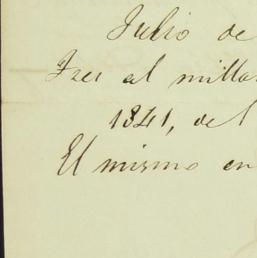 Julio de
Tres al millar
1841, del
El mismo en